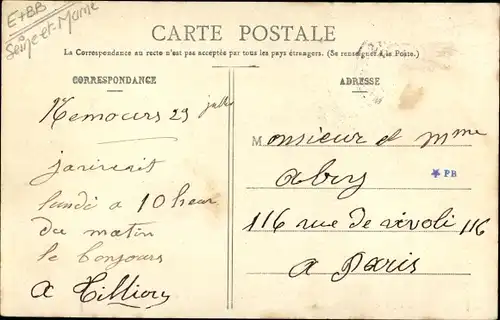 E+BB
Seine et Marne
CARTE POSTALE
La Correspondance au recto n'est pas acceptée par tous les pays étrangers. (Se renseigner à la Poste.)
CORRESPONDANCE
ADRESSE
Nemours 29 juillet
lundi a 10 heur
du matin
le bonjours
a Tilliory
Monsieur et mme
abry
* PB
116 rue de rivoli 116
a Paris